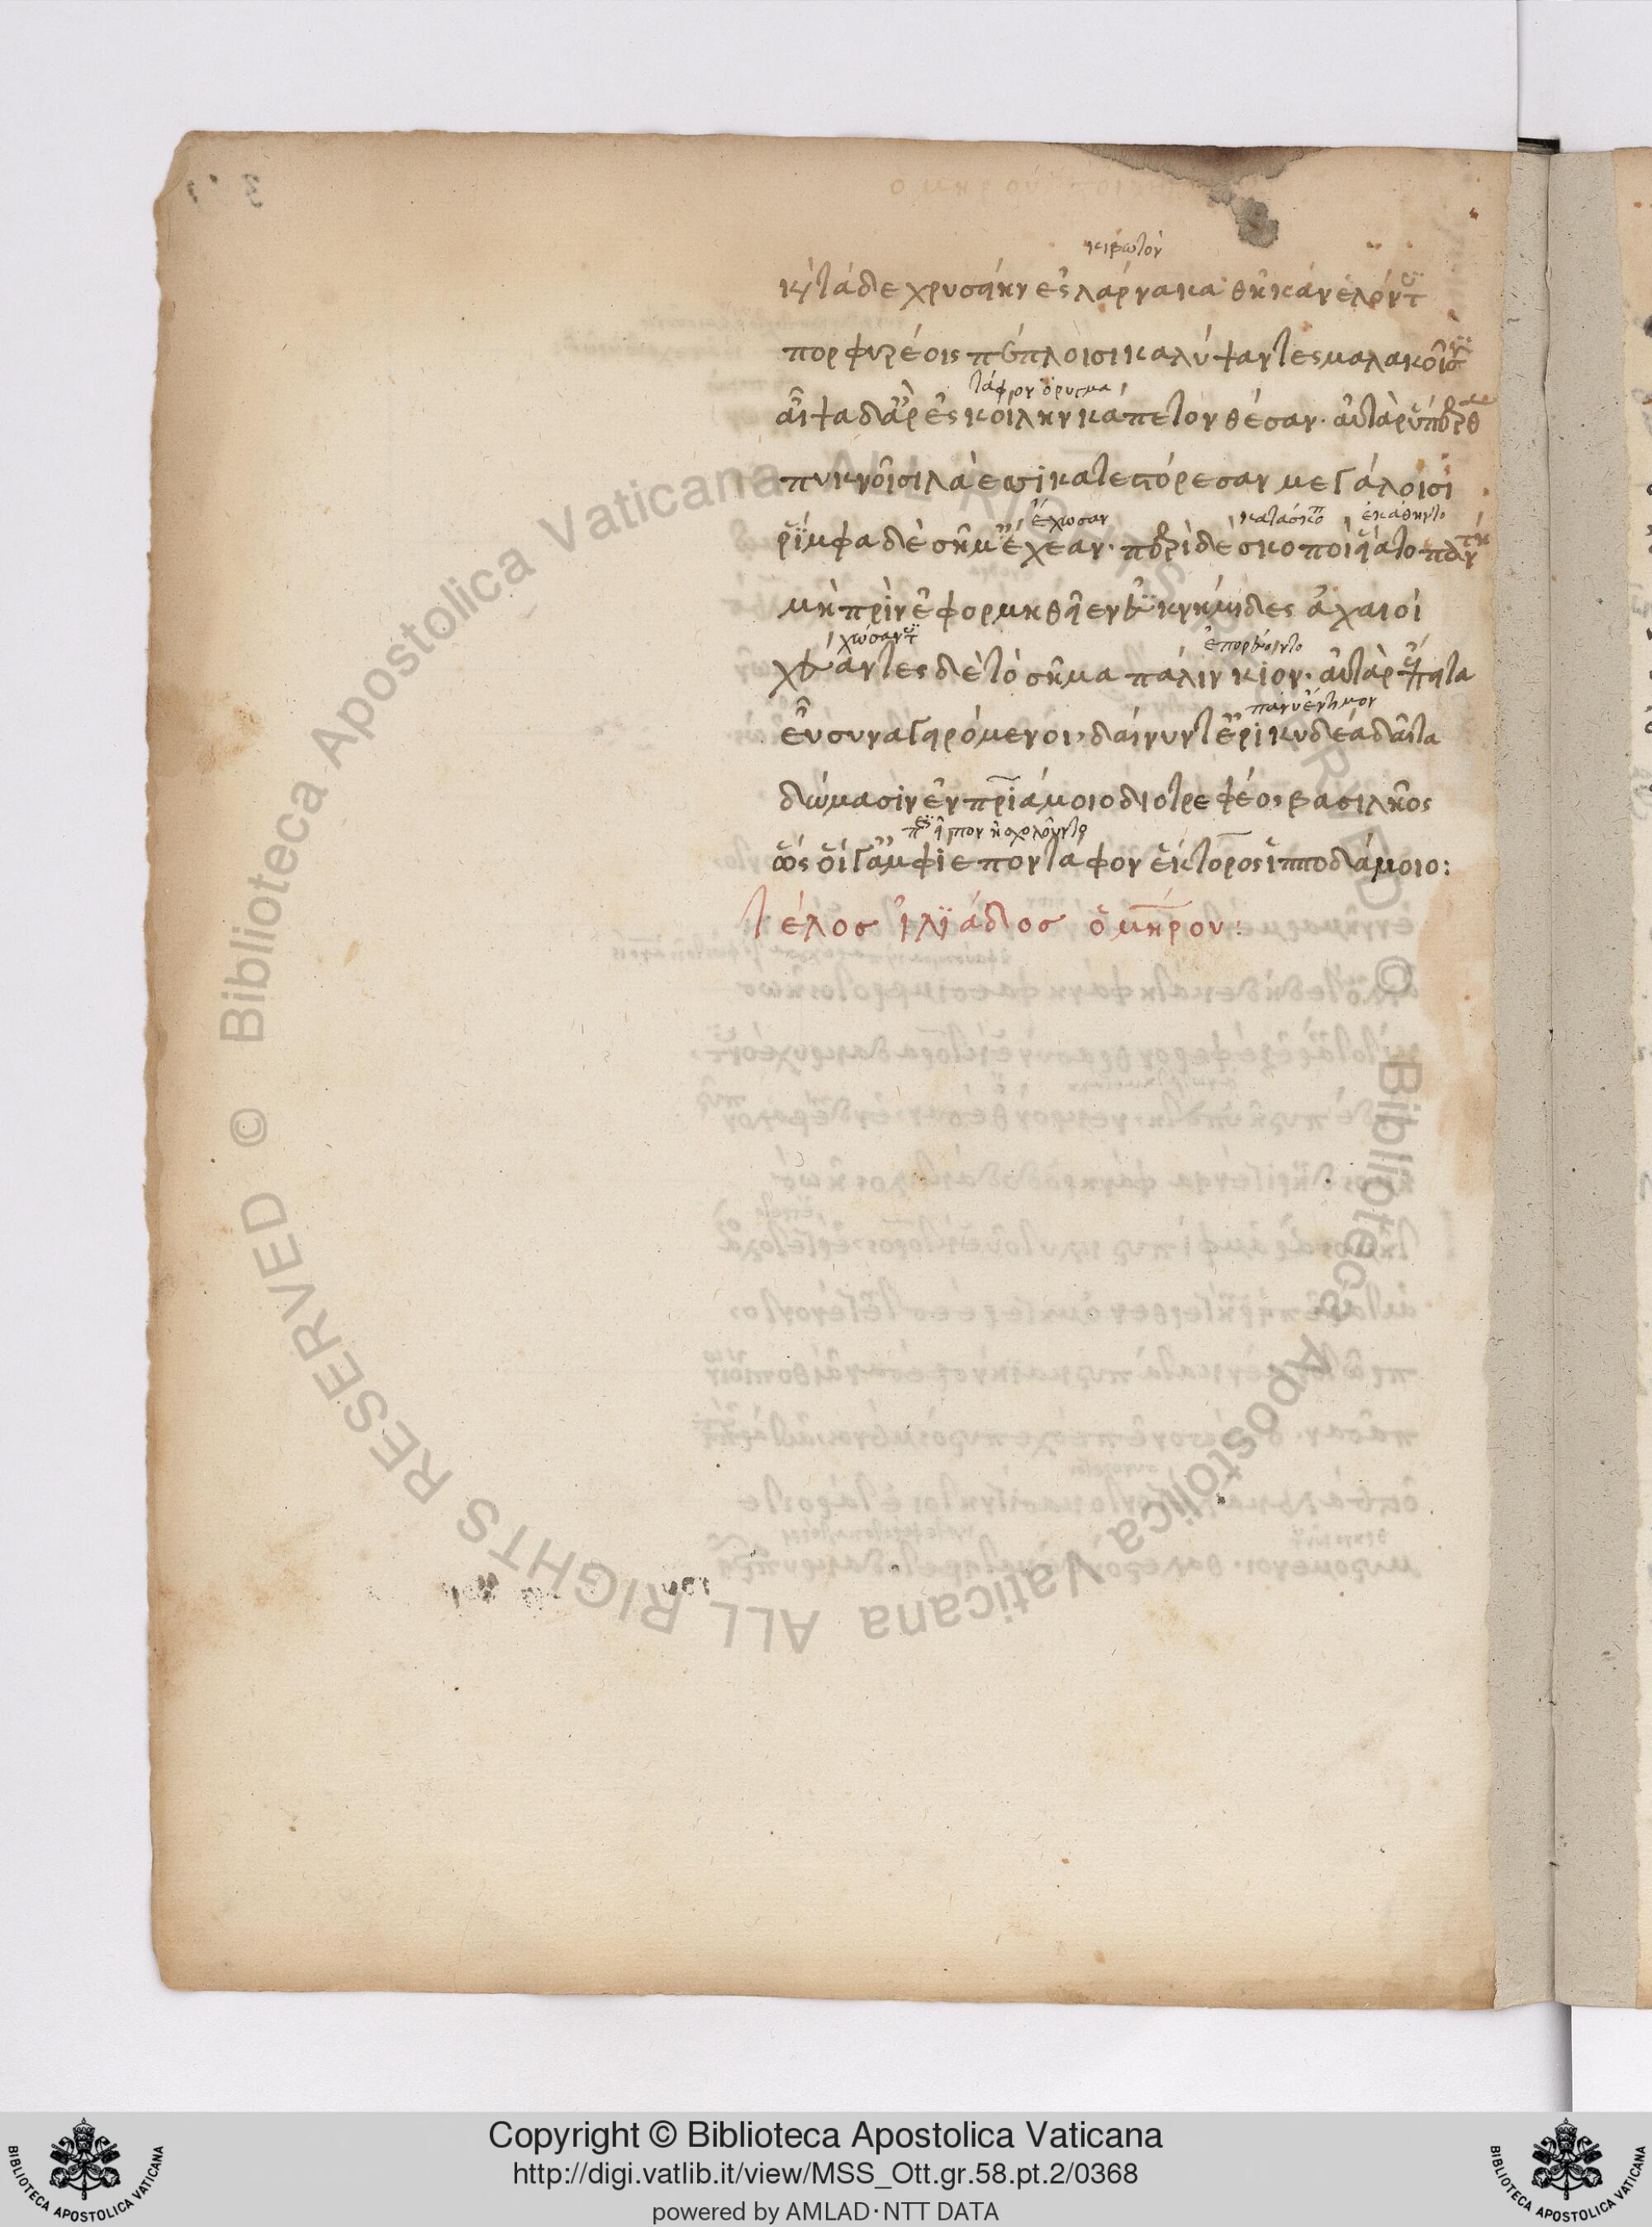 κιβωτὸν
καὶ τά γε χρυσείην ἐς λάρνακα θῆκαν ἑλόντες
πορφυρέοις πέπλοισι καλύψαντες μαλακοῖσιν
τάφρον ὄρυγμα
αἶψα δ' ἄρ' ἐς κοίλην κάπετον θέσαν· αὐτὰρ ὕπερθε
πυκνοῖσι λάεσσι κατεστόρεσαν μεγάλοισι
ἔχωσαν κατάσκοποι ἐκάθηντο
ῥίμφα δὲ σῆμ' ἔχεαν· περὶ δὲ σκοποὶ εἵατο πάντη
μὴ πρὶν ἐφορμηθεῖεν ἐϋκνήμιδες ἀχαιοί
χώσαντες ἐπορεύοντο
χεύαντες δὲ τὸ σῆμα πάλιν κίον· αὐτὰρ ἔπειτα
πάνυ ἔντιμον
εὖ συναγειρόμενοι, δαίνυντ' ἐρικυδέα δαῖτα
δώμασιν ἐν πριάμοιο διοτρεφέος βασιλῆος
ὣς οἵ γ' ἀμφίεπον τάφον ἕκτορος ἱπποδάμοιο:
τέλος ἰλιάδος ὁμήρου:
© Biblioteca Apostolica Vaticana ALL RIGHTS RESERVED © Biblioteca Apostolica Vaticana ALL RIGHTS RESERVED
Copyright © Biblioteca Apostolica Vaticana
http://digi.vatlib.it/view/MSS_Ott.gr.58.pt.2/0368
powered by AMLAD·NTT DATA
BIBLIOTECA APOSTOLICA VATICANA
BIBLIOTECA APOSTOLICA VATICANA